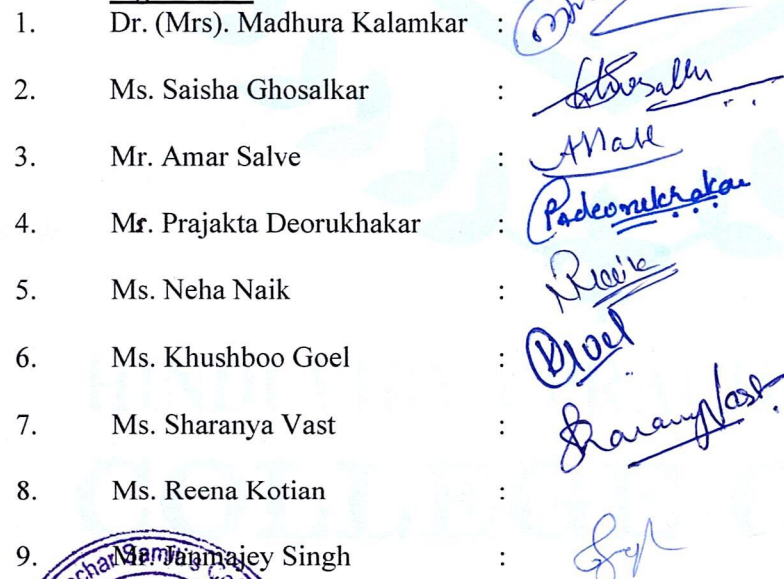 1. Dr. (Mrs). Madhura Kalamkar :
2. Ms. Saisha Ghosalkar : Ghosalkar
3. Mr. Amar Salve :
4. Mr. Prajakta Deorukhakar : Pndeorukhakar
5. Ms. Neha Naik : NNaik
6. Ms. Khushboo Goel : KGoel
7. Ms. Sharanya Vast : Sharanya Vast
8. Ms. Reena Kotian :
9. Mr. Janmajey Singh :
char Samiti's